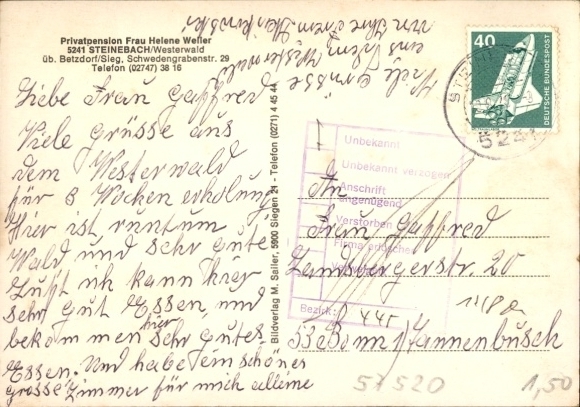 Privatpension Frau Helene Weller
5241 STEINEBACH/Westerwald
üb. Betzdorf/Sieg, Schwedengrabenstr. 29
Telefon (02747) 38 16
Liebe Frau Gaffred
Viele grüsse aus
dem Westerwald
für 3 Wochen erholung
Hier ist runtum
Wald und sehr gute
Luft ich kann hier
sehr gut Essen, und
bekommen hier sehr gutes
Essen. Und habe ein schönes
grosse Zimmer für mich alleine
Viele grüsse
aus dem Westerwald
von Ihre
Bildverlag M. Sailer, 5900 Siegen 21 - Telefon (0271) 4 45 44
40
DEUTSCHE BUNDESPOST
5241
Unbekannt
Unbekannt verzogen
Anschrift
ungenügend
Verstorben
Firma erloschen
Bezirk:
445
An
Frau Gaffred
Landsbergerstr. 20
53 Bonn 1/Tannenbusch
57520
1,50